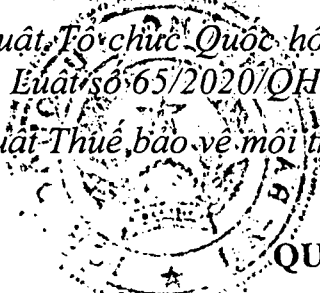 uật Tổ chức Quốc hộ
Luật số 65/2020/QH
uật Thuế bảo vệ môi tr
QU